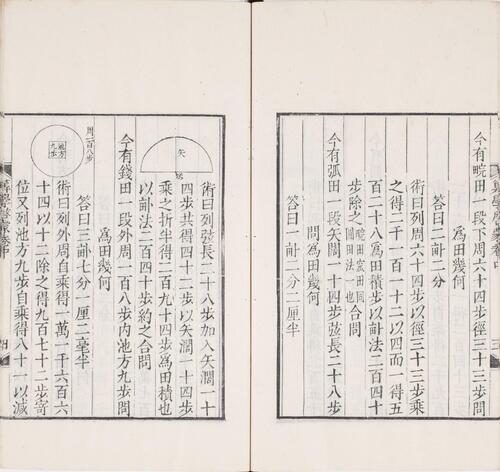 今有畹田一段下周六十四步徑三十三步問
為田幾何
答曰二畝二分
術曰列周六十四步以徑三十三步乘
之得二千一百一十二以四而一得五
百二十八為田積步以畝法二百四十
步除之畹田宛田同圓田法也合問
今有弧田一段矢闊一十四步弦長二十八步
問為田幾何
答曰一畝二分二厘半
矢
弦
術曰列弦長二十八步加入矢闊一十
四步共得四十二步以矢闊一十四步
乘之折半得二百九十四步為田積也
以畝法二百四十步約之合問
今有錢田一段外周一百八步內池方九步問
為田幾何
周一百八步
池方
九步
答曰三畝七分一厘二毫半
術曰列外周自乘得一萬一千六百六
十四以十二除之得九百七十二步寄
位又列池方九步自乘得八十一以減